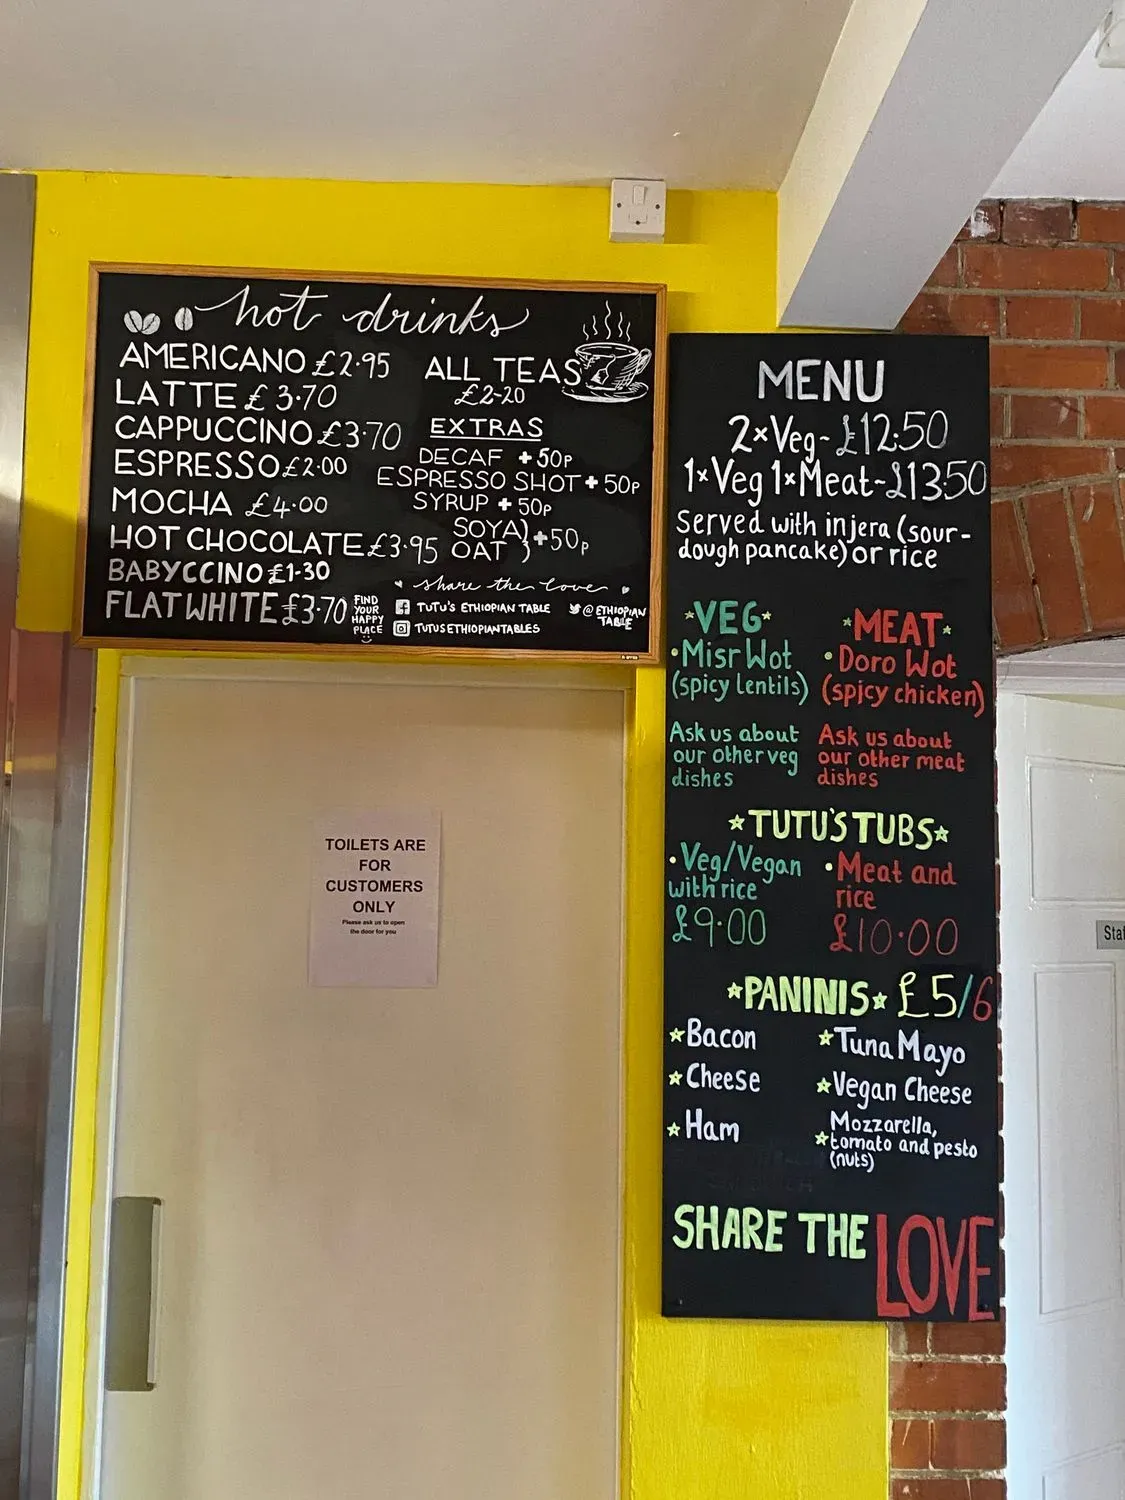 hot drinks
AMERICANO £2.95
LATTE £3.70
CAPPUCCINO £3.70
ESPRESSO £2.00
MOCHA £4.00
HOT CHOCOLATE £3.95
BABYCCINO £1.30
FLAT WHITE £3.70
ALL TEAS
£2-20
EXTRAS
DECAF +50p
ESPRESSO SHOT +50p
SYRUP +50p
SOYA
OAT } +50p
share the love
FIND
YOUR
HAPPY
PLACE
TUTU'S ETHIOPIAN TABLE
TUTUSETHIOPIANTABLES
@ETHIOPIAN
TABLE
MENU
2xVeg- £12.50
1xVeg 1xMeat-£13.50
Served with injera (sour-
dough pancake) or rice
VEG
Misr Wot
(spicy lentils)
Ask us about
our other veg
dishes
MEAT
Doro Wot
(spicy chicken)
Ask us about
our other meat
dishes
TUTU'S TUBS
Veg/Vegan
with rice
£9.00
Meat and
rice
£10.00
PANINIS £5/6
Bacon
Cheese
Ham
Tuna Mayo
Vegan Cheese
Mozzarella,
tomato and pesto
(nuts)
SHARE THE LOVE
TOILETS ARE
FOR
CUSTOMERS
ONLY
Please ask us to open
the door for you